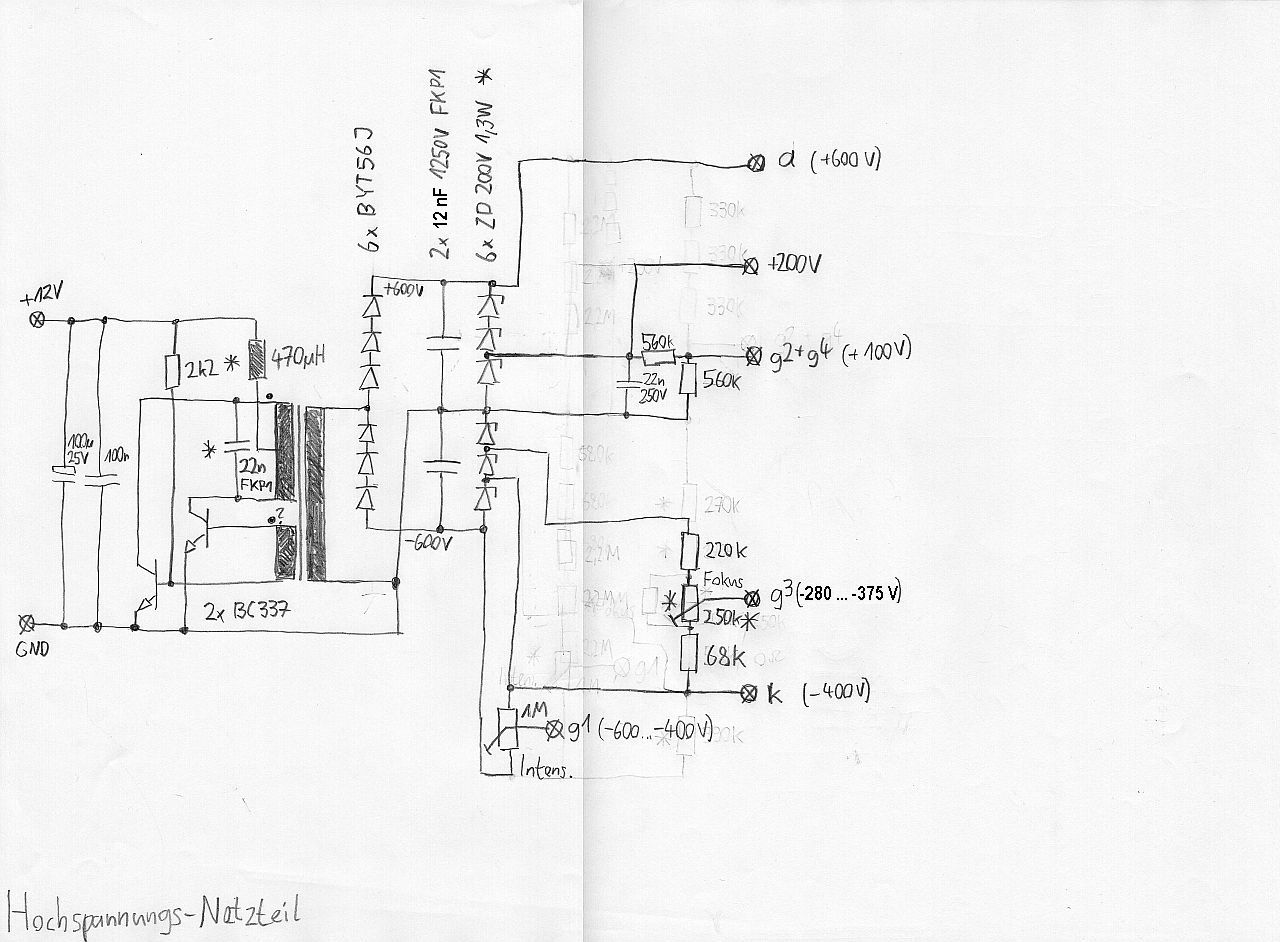 6x BYT56J
2x 12nF 1250V FKP1
6x ZD 200V 1,3W *
d (+600V)
+200V
g2+g4 (+100V)
+12V
+600V
2k2
*
470µH
560k
22n
250V
560k
100µ
25V
100n
*
22n
FKP1
?
-600V
2x BC337
GND
220k
Fokus
g3 (-280 ... -375 V)
*
250k*
68k
k (-400V)
1M
g1 (-600...-400V)
Intens.
330k
330k
330k
270k
Hochspannungs-Netzteil